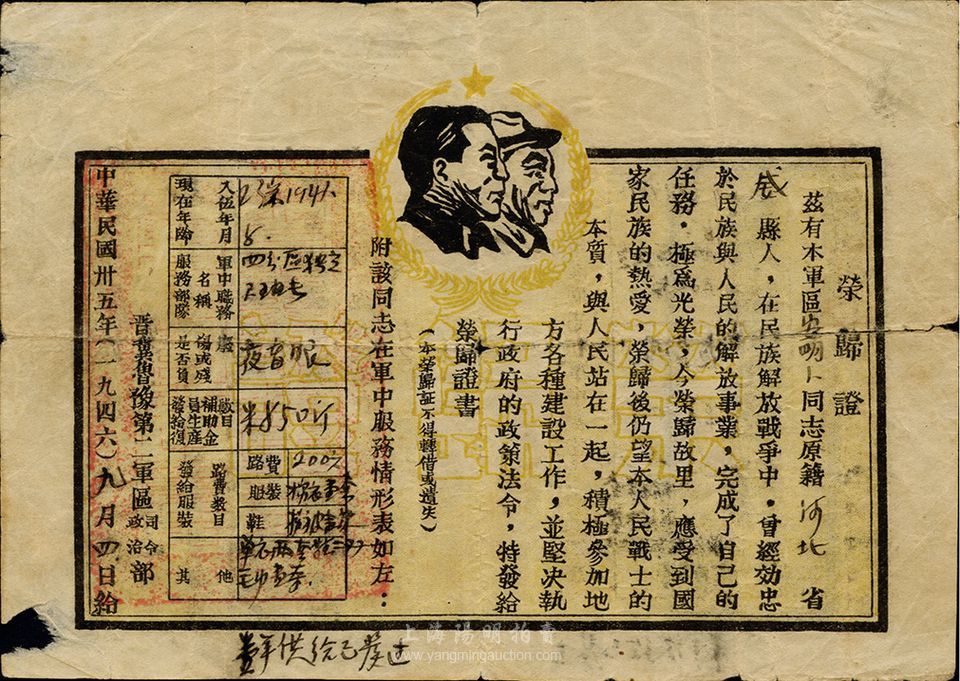 榮歸證
茲有本軍區安明仁同志原籍河北省
威縣人，在民族解放戰爭中，曾經効忠
於民族與人民的解放事業，完成了自己的
任務，極為光榮，今榮歸故里，應受到國
家民族的熱愛，榮歸後仍望本人民戰士的
本質，與人民站在一起，積極參加地
方各種建設工作，並堅决執
行政府的政策法令，特發給
榮歸證書
（本榮歸証不得轉借或遺失）
附該同志在軍中服務情形表如左：
入伍年月
現在年齡
1941
軍中職務
名稱
服務部隊
四分區獨立
是否負
傷或殘
廢
夜盲眼
發給復
員生產
補助金
數目
米850斤
路費數目
發給服裝
路費
200元
服裝
鞋
其他
晉冀魯豫第二軍區司令政治部
中華民國卅五年（一九四六）九月四日給
供給已發过
上海陽明拍賣
www.yangmingauction.com